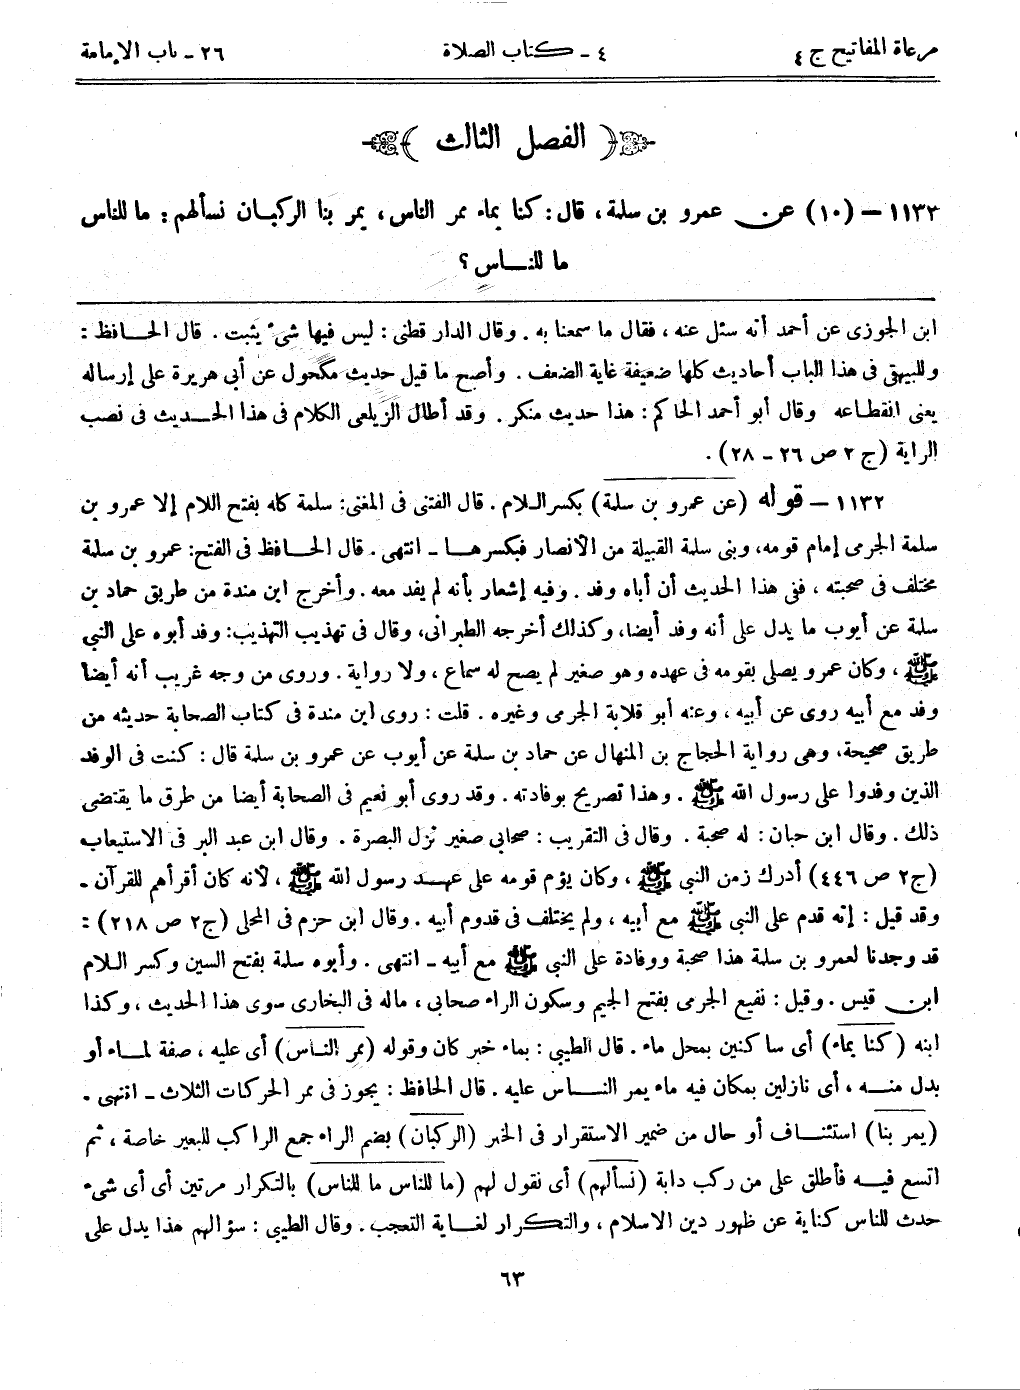 مرعاة المفاتيح ج ٤
٤ ـ كتاب الصلاة
٢٦ ـ باب الإمامة
﴿ الفصل الثالث ﴾
١١٣٢ – (١٠) عن عمرو بن سلمة، قال: كنا بماء ممر الناس، يمر بنا الركبان نسألهم: ما للناس
ما للناس؟
ابن الجوزى عن أحمد أنه سئل عنه، فقال ما سمعنا به. وقال الدار قطنى: ليس فيها شىء يثبت. قال الحافظ:
وللبيهقى فى هذا الباب أحاديث كلها ضعيفة غاية الضعف. وأصح ما قيل حديث مكحول عن أبى هريرة على إرساله
يعنى انقطاعه وقال أبو أحمد الحاكم: هذا حديث منكر. وقد أطال الزيلعى الكلام فى هذا الحديث فى نصب
الراية (ج ٢ ص ٢٦ – ٢٨).
١١٣٢ – قوله (عن عمرو بن سلمة) بكسر اللام. قال الفتنى فى المغنى: سلمة كله بفتح اللام إلا عمرو بن
سلمة الجرمى إمام قومه، وبنى سلمة القبيلة من الأنصار فبكسرها ـ انتهى. قال الحافظ فى الفتح: عمرو بن سلمة
مختلف فى صحبته، ففى هذا الحديث أن أباه وفد. وفيه إشعار بأنه لم يفد معه. وأخرج ابن مندة من طريق حماد بن
سلمة عن أيوب ما يدل على أنه وفد أيضا، وكذلك أخرجه الطبرانى، وقال فى تهذيب التهذيب: وفد أبوه على النبي
ﷺ، وكان عمرو يصلى بقومه فى عهده وهو صغير لم يصح له سماع، ولا رواية. وروى من وجه غريب أنه أيضا
وفد مع أبيه روى عن أبيه، وعنه أبو قلابة الجرمى وغيره. قلت: روى ابن مندة فى كتاب الصحابة حديثه من
طريق صحيحة، وهى رواية الحجاج بن المنهال عن حماد بن سلمة عن أيوب عن عمرو بن سلمة قال: كنت فى الوفد
الذين وفدوا على رسول الله ﷺ. وهذا تصريح بوفادته. وقد روى أبو نعيم فى الصحابة أيضا من طرق ما يقتضى
ذلك. وقال ابن حبان: له صحبة. وقال فى التقريب: صحابى صغير نزل البصرة. وقال ابن عبد البر فى الاستيعاب
(ج٢ ص ٤٤٦) أدرك زمن النبي ﷺ، وكان يؤم قومه على عهد رسول الله ﷺ، لأنه كان أقرأهم للقرآن ـ
وقد قيل: إنه قدم على النبي ﷺ مع أبيه، ولم يختلف فى قدوم أبيه. وقال ابن حزم فى المحلى (ج٢ ص ٢١٨):
قد وجدنا لعمرو بن سلمة هذا صحبة ووفادة على النبي ﷺ مع أبيه ـ انتهى. وأبوه سلمة بفتح السين وكسر اللام
ابن قيس. وقيل: نفيع الجرمى بفتح الجيم وسكون الراء صحابى، ماله فى البخارى سوى هذا الحديث، وكذا
ابنه (كنا بماء) أى ساكنين بمحل ماء. قال الطيبى: بماء خبر كان وقوله (ممر الناس) أى عليه، صفة لماء أو
بدل منه، أى نازلين بمكان فيه ماء يمر الناس عليه. قال الحافظ: يجوز فى ممر الحركات الثلاث ـ انتهى.
(يمر بنا) استئناف أو حال من ضمير الاستقرار فى الخبر (الركبان) بضم الراء جمع الراكب للبعير خاصة، ثم
اتسع فيه فأطلق على من ركب دابة (نسألهم) أى نقول لهم (ما للناس ما للناس) بالتكرار مرتين أى أى شىء
حدث للناس كناية عن ظهور دين الاسلام، والتكرار لغاية التعجب. وقال الطيبى: سؤالهم هذا يدل على
٦٣